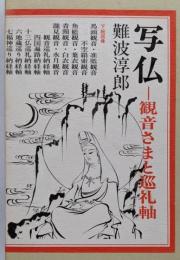 写仏―観音さまと巡礼軸
難波淳郎
馬頭観音・准胝観音
不空羂索観音
白衣観音
魚籃観音・葉衣観音
青頸観音
瀧見観音・水月観音
観音巡礼納経軸
四国遍路納経軸
十三仏巡り納経軸
六地蔵巡り納経軸
七福神巡り納経軸